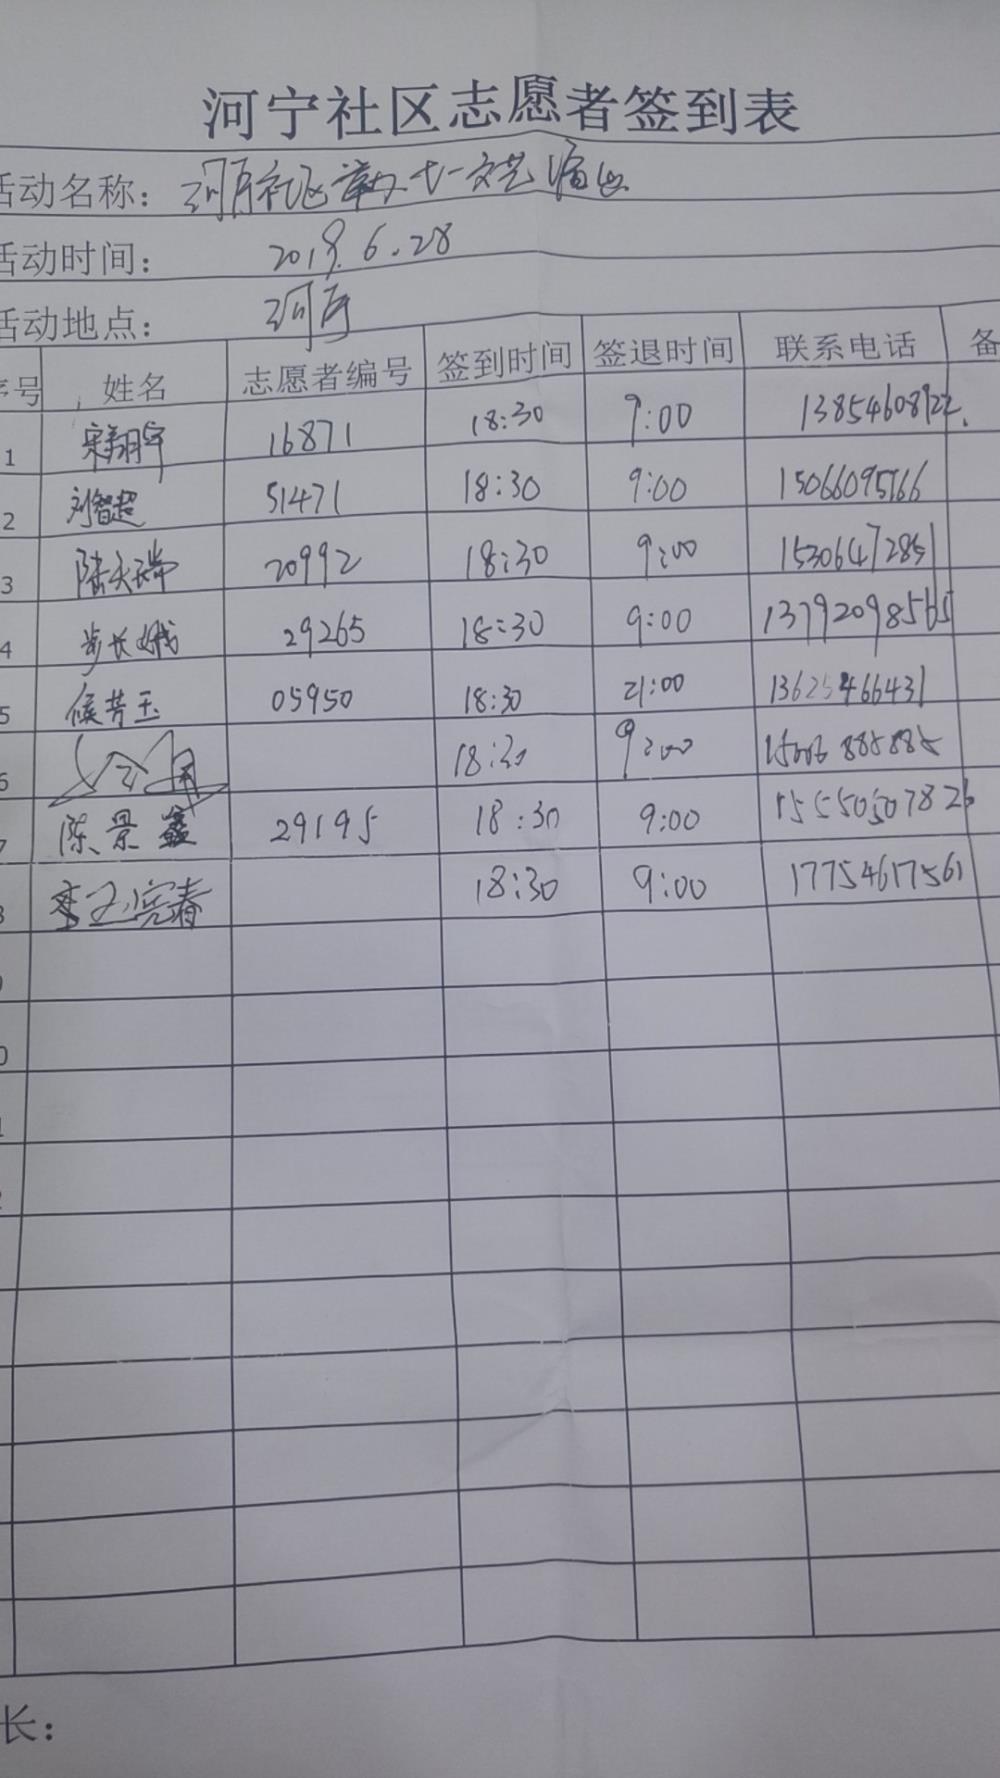 河宁社区志愿者签到表
活动名称： 河宁社区举办七一文艺演出
活动时间： 2019.6.28
活动地点： 河宁
序号 姓名 志愿者编号 签到时间 签退时间 联系电话 备
1 宋翔宇 16871 18:30 9:00 13854608922
2 刘智超 51471 18:30 9:00 15066095766
3 陆天瑞 20992 18:30 9:00 15306472851
4 步长娥 29265 18:30 9:00 13792098565
5 候芳玉 05950 18:30 21:00 13625466431
6 18:30 9:00 15006885885
7 陈景鑫 29195 18:30 9:00 15550507826
8 18:30 9:00 17754617561
长：